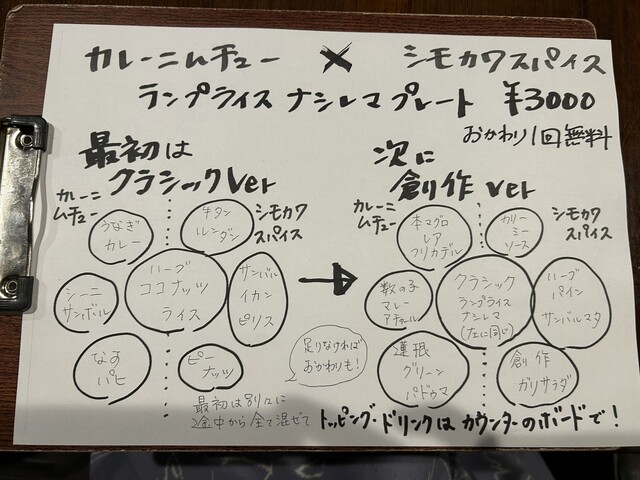 カレーニムチュー × シモカワスパイス
ランプライス ナシレマ プレート ¥3000
おかわり1回無料
最初は
クラシックver
カレーニ
ムチュー
シモカワ
スパイス
うなぎ
カレー
牛タン
ルンダン
シーニ
サンボル
ハーブ
ココナッツ
ライス
サンバル
イカン
ビリス
なす
パヒ
ピー
ナッツ
最初は別々に
途中から全て混ぜて
足りなければ
おかわりも!
次に
創作ver
カレーニ
ムチュー
シモカワ
スパイス
本マグロ
レア
フリカデル
カリー
ミー
ソース
数の子
マレー
アチャール
クラシック
ランプライス
ナシレマ
(左に同じ)
ハーブ
パイン
サンバルマタ
蓮根
グリーン
パドゥマ
創作
ガリサラダ
トッピング・ドリンクは カウンターのボードで!